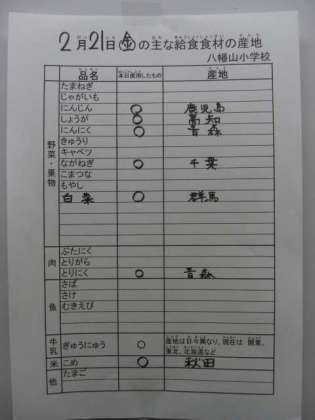 2月21日(金)の主な給食食材の産地
八幡山小学校
品名 本日使用したもの 産地
野菜・果物
たまねぎ
じゃがいも
にんじん ○ 鹿児島
しょうが ○ 高知
にんにく ○ 青森
きゅうり
キャベツ
ながねぎ ○ 千葉
こまつな
もやし
白菜 ○ 群馬
肉
ぶたにく
とりがら
とりにく ○ 青森
魚
さば
さけ
むきえび
牛乳 ぎゅうにゅう ○ 産地は日々異なり、現在は 関東、
東北、北海道など
米 こめ ○ 秋田
他 たまご